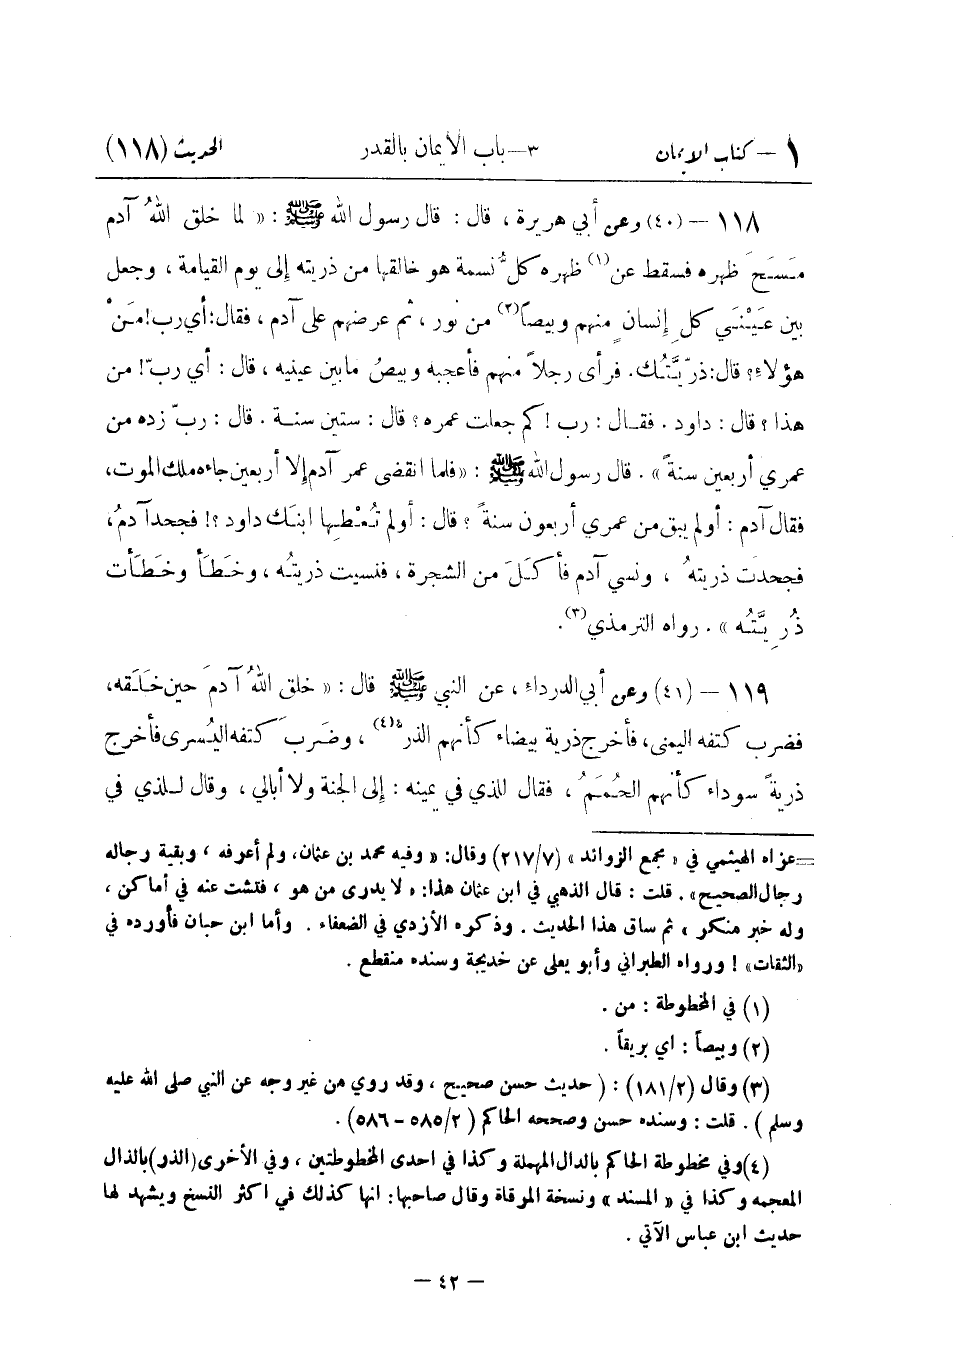 ١ – كتاب الإيمان ٣ – باب الإيمان بالقدر الحديث (١١٨)
١١٨ – (٤٠) وعن أبي هريرة ، قال : قال رسول الله ﷺ : « لما خلق اللهُ آدم
مَسَحَ ظهره فسقط عن(١) ظهره كلُّ نسمة هو خالقها من ذريته إلى يوم القيامة ، وجعل
بين عَيْنَي كل إنسانٍ منهم وبيصاً(٢) من نور ، ثم عرضهم على آدم ، فقال: أي رب! مَنْ
هؤلاء؟ قال: ذرّيَّتُك. فرأى رجلاً منهم فأعجبه وبيصُ مابين عينيه ، قال : أي ربّ! من
هذا ؟ قال : داود . فقال : رب ! كم جعلت عمره ؟ قال : ستين سنة . قال : ربّ زده من
عمري أربعين سنةً » . قال رسول الله ﷺ : «فلما انقضى عمر آدم إلا أربعين جاءه ملك الموت،
فقال آدم : أولم يبق من عمري أربعون سنةً ؟ قال : أولم تُعْطِها ابنك داود ؟! فجحد آدمُ،
فجحدت ذريتهُ ، ونسي آدم فأكَلَ من الشجرة ، فنسيت ذريتُه ، وخَطَأ وخَطَأت
ذُرِيَّتُه » . رواه الترمذي(٣).
١١٩ – (٤١) وعن أبي الدرداء ، عن النبي ﷺ قال : « خلق اللهُ آدمَ حين خَلَقه،
فضرب كتفه اليمنى، فأخرج ذرية بيضاء كأنهم الذر(٤) ، وضَرب كتفه اليُسرى فأخرج
ذريةً سوداء كأنهم الحُمَمُ ، فقال للذي في يمينه : إلى الجنة ولا أبالي ، وقال للذي في
= عزاه الهيثمي في « مجمع الزوائد » (٢١٧/٧) وقال: « وفيه محمد بن عثمان، ولم أعرفه ، وبقية رجاله
رجال الصحيح». قلت : قال الذهبي في ابن عثمان هذا: « لا يدرى من هو ، فتشت عنه في أماكن ،
وله خبر منكر » ثم ساق هذا الحديث . وذكره الأزدي في الضعفاء . وأما ابن حبان فأورده في
«الثقات» ! ورواه الطبراني وأبو يعلى عن خديجة وسنده منقطع .
(١) في المخطوطة : من .
(٢) وبيصاً : اي بريقاً .
(٣) وقال (١٨١/٢) : ( حديث حسن صحيح ، وقد روي من غير وجه عن النبي صلى الله عليه
وسلم ) . قلت : وسنده حسن وصححه الحاكم ( ٥٨٥/٢ – ٥٨٦) .
(٤) وفي مخطوطة الحاكم بالدال المهملة وكذا في احدى المخطوطتين ، وفي الأخرى (الذر) بالذال
المعجمه وكذا في « المسند » ونسخة المرقاة وقال صاحبها: انها كذلك في اكثر النسخ ويشهد لها
حديث ابن عباس الآتي .
– ٤٢ –